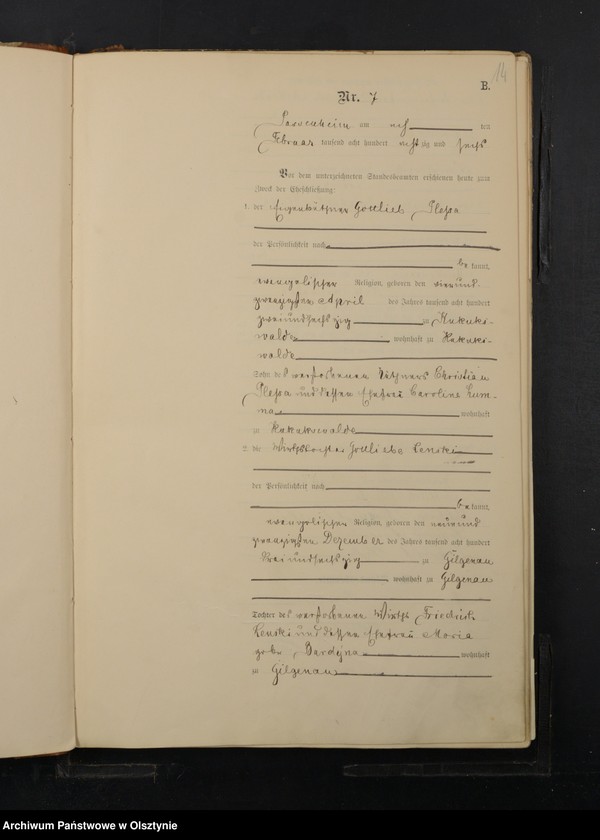 14
B.
Nr. 7
am acht ten
Februar tausend acht hundert achtzig und sechs
Vor dem unterzeichneten Standesbeamten erschienen heute zum
Zweck der Eheschließung:
1. der Eigenkäthner Gottlieb Plessa
der Persönlichkeit nach
be kannt,
evangelischer Religion, geboren den vierund-
zwanzigsten April des Jahres tausend acht hundert
zweiundsechszig zu Kukuks-
walde wohnhaft zu Kukuks-
walde
Sohn des verstorbenen Käthners Christian
Plessa und dessen Ehefrau Caroline
wohnhaft
zu Kukukswalde
2. die Wirthstochter Gottliebe Lenski
der Persönlichkeit nach
be kannt,
evangelischer Religion, geboren den neunund
zwanzigsten Dezember des Jahres tausend acht hundert
dreiundsechszig zu Gilgenau
wohnhaft zu Gilgenau
Tochter des verstorbenen Wirths Friedrich
Lenski und dessen Ehefrau Maria
geb. Bardyna wohnhaft
zu Gilgenau
Archiwum Państwowe w Olsztynie